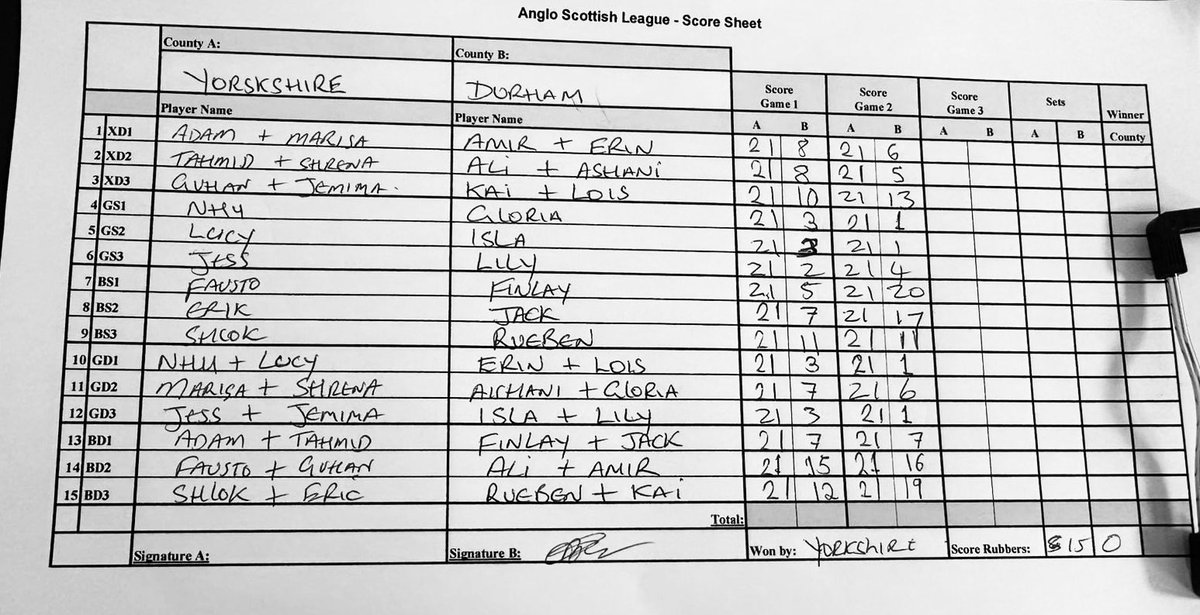 Anglo Scottish League - Score Sheet
County A: County B:
YORSKSHIRE DURHAM Score Game 1 Score Game 2 Score Game 3 Sets Winner
Player Name Player Name A B A B A B A B County
1 XD1 ADAM + MARISA AMIR + ERIN 21 8 21 6
2 XD2 TAHMID + SHRENA ALI + ASHANI 21 8 21 5
3 XD3 GUHAN + JEMIMA. KAI + LOIS 21 10 21 13
4 GS1 NHY GLORIA 21 3 21 1
5 GS2 LUCY ISLA 21 3 21 1
6 GS3 JESS LILY 21 2 21 4
7 BS1 FAUSTO FINLAY 21 5 21 20
8 BS2 ERIK JACK 21 7 21 17
9 BS3 SHLOK RUEBEN 21 11 21 11
10 GD1 NHU + LUCY ERIN + LOIS 21 3 21 1
11 GD2 MARISA + SHRENA AISHANI + GLORIA 21 7 21 6
12 GD3 JESS + JEMIMA ISLA + LILY 21 3 21 1
13 BD1 ADAM + TAHMID FINLAY + JACK 21 7 21 7
14 BD2 FAUSTO + GUHAN ALI + AMIR 21 15 21 16
15 BD3 SHLOK + ERIC RUEBEN + KAI 21 12 21 19
Total:
Signature A: Signature B: Won by: YORKSHIRE Score Rubbers: 15 0